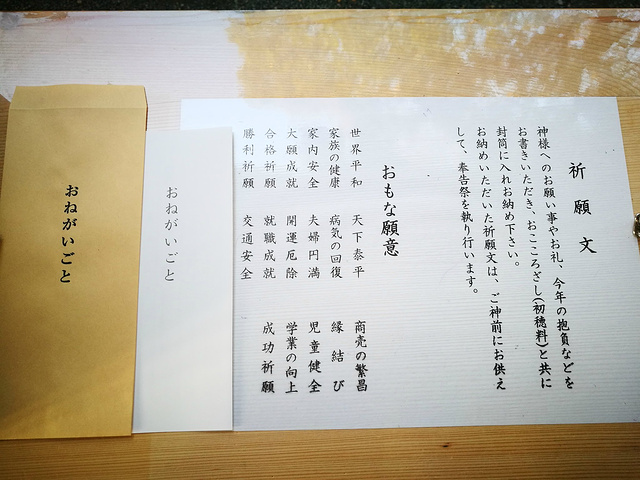 祈願文
神様へのお願い事やお礼、今年の抱負などを
お書きいただき、おこころざし(初穂料)と共に
封筒に入れお納め下さい。
お納めいただいた祈願文は、ご神前にお供え
して、奉告祭を執り行います。
おもな願意
世界平和 天下泰平 商売の繁昌
家族の健康 病気の回復 縁結び
家内安全 夫婦円満 児童健全
大願成就 開運厄除 学業の向上
合格祈願 就職成就 成功祈願
勝利祈願 交通安全
おねがいごと
おねがいごと